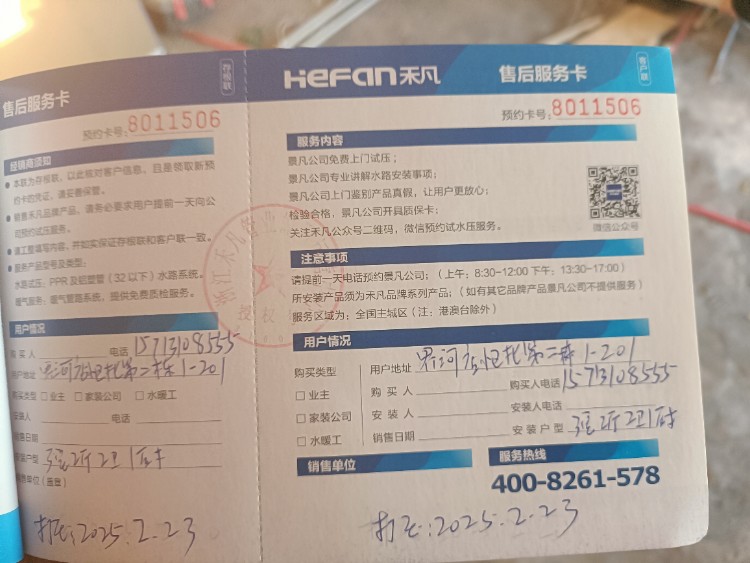 售后服务卡
存根联
预约卡号:8011506
经销商须知
本联为存根联，以此核对客户信息、且是领取新预
约卡的凭证，请妥善保管。
销售禾凡品牌产品，请务必要求用户提前一天向公
司预约试压服务。
请工整填写内容，并如实保证存根联和客户联一致。
服务产品型号及类型:
水路试压: PPR及铝塑管（32以下）水路系统。
暖气服务: 暖气管路系统，提供免费质检服务。
用户情况
购买人 电话 15713108555
用户地址 第二栋1-201
购买类型 □业主 □家装公司 □水暖工
安装人 电话
销售日期
户型 2卫1
单位（盖章）
2025.2.23
HeFan禾凡 售后服务卡
客户联
预约卡号:8011506
服务内容
景凡公司免费上门试压；
景凡公司专业讲解水路安装事项；
景凡公司上门鉴别产品真假，让用户更放心；
检验合格，景凡公司开具质保卡；
关注禾凡公众号二维码，微信预约试水压服务。
微信公众号
注意事项
请提前一天电话预约景凡公司；（上午: 8:30-12:00 下午: 13:30-17:00）
所安装产品须为禾凡品牌系列产品；（如有其它品牌产品景凡公司不提供服务）
服务区域为: 全国主城区（注: 港澳台除外）
用户情况
购买类型 用户地址 第二栋1-201
□业主 购买人 购买人电话 15713108555
□家装公司 安装人 安装人电话
□水暖工 销售日期 安装户型 2卫1
销售单位
服务热线
400-8261-578
2025.2.23